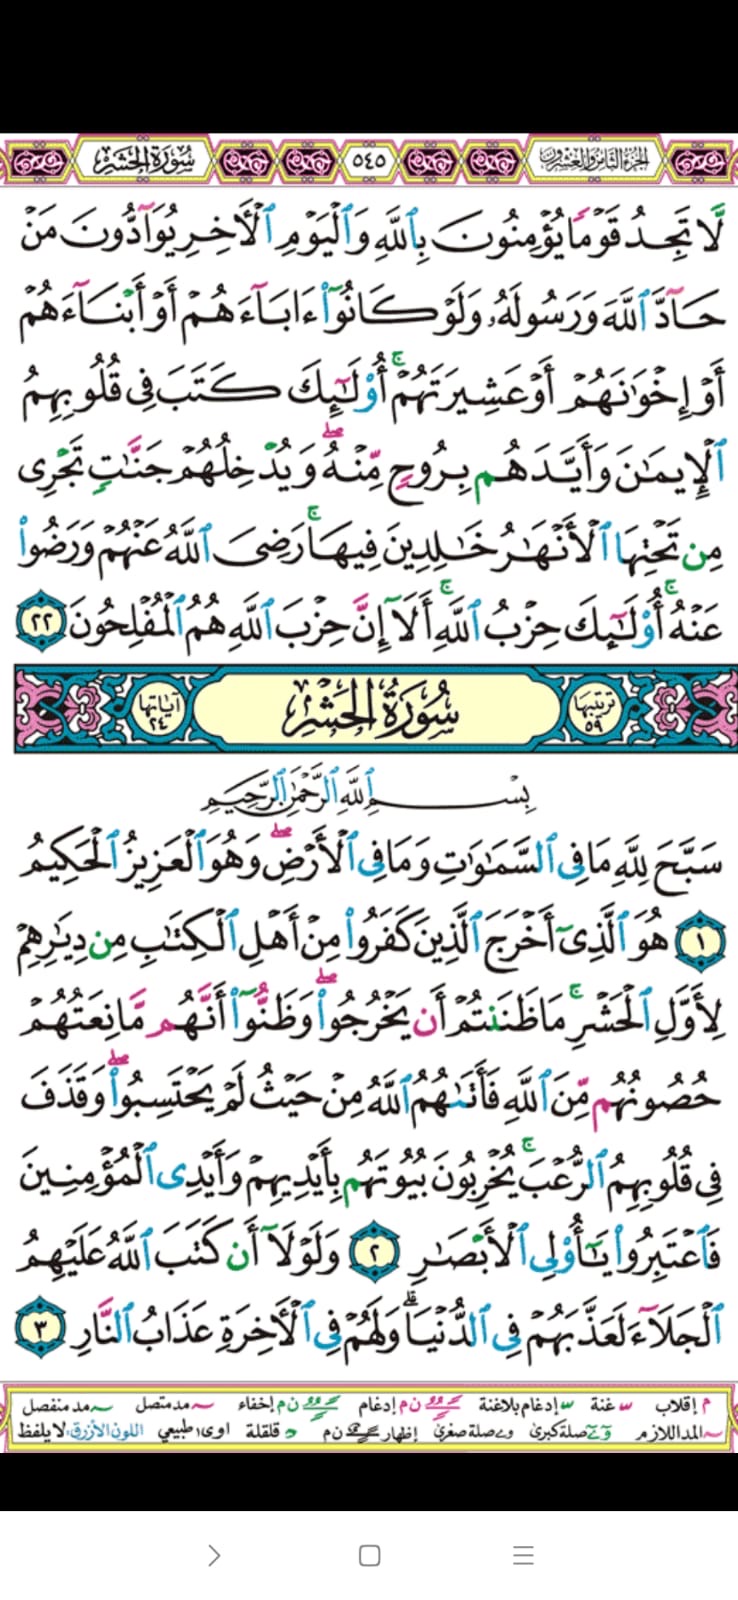 الجزء الثامن والعشرون
٥٤٥
سورة الحشر
لَّا تَجِدُ قَوْمًا يُؤْمِنُونَ بِٱللَّهِ وَٱلْيَوْمِ ٱلْأَخِرِ يُوَآدُّونَ مَنْ
حَآدَّ ٱللَّهَ وَرَسُولَهُۥ وَلَوْ كَانُوٓا۟ ءَابَآءَهُمْ أَوْ أَبْنَآءَهُمْ
أَوْ إِخْوَٰنَهُمْ أَوْ عَشِيرَتَهُمْ ۚ أُو۟لَٰٓئِكَ كَتَبَ فِى قُلُوبِهِمُ
ٱلْإِيمَٰنَ وَأَيَّدَهُم بِرُوحٍ مِّنْهُ ۖ وَيُدْخِلُهُمْ جَنَّٰتٍ تَجْرِى
مِن تَحْتِهَا ٱلْأَنْهَٰرُ خَٰلِدِينَ فِيهَا ۚ رَضِىَ ٱللَّهُ عَنْهُمْ وَرَضُوا۟
عَنْهُ ۚ أُو۟لَٰٓئِكَ حِزْبُ ٱللَّهِ ۚ أَلَآ إِنَّ حِزْبَ ٱللَّهِ هُمُ ٱلْمُفْلِحُونَ ٢٢
ترتيبها ٥٩
سُورَةُ الحَشْرِ
آياتها ٢٤
بِسْمِ ٱللَّهِ ٱلرَّحْمَٰنِ ٱلرَّحِيمِ
سَبَّحَ لِلَّهِ مَا فِى ٱلسَّمَٰوَٰتِ وَمَا فِى ٱلْأَرْضِ ۖ وَهُوَ ٱلْعَزِيزُ ٱلْحَكِيمُ
١ هُوَ ٱلَّذِىٓ أَخْرَجَ ٱلَّذِينَ كَفَرُوا۟ مِنْ أَهْلِ ٱلْكِتَٰبِ مِن دِيَٰرِهِمْ
لِأَوَّلِ ٱلْحَشْرِ ۚ مَا ظَنَنتُمْ أَن يَخْرُجُوا۟ ۖ وَظَنُّوٓا۟ أَنَّهُم مَّانِعَتُهُمْ
حُصُونُهُم مِّنَ ٱللَّهِ فَأَتَىٰهُمُ ٱللَّهُ مِنْ حَيْثُ لَمْ يَحْتَسِبُوا۟ ۖ وَقَذَفَ
فِى قُلُوبِهِمُ ٱلرُّعْبَ ۚ يُخْرِبُونَ بُيُوتَهُم بِأَيْدِيهِمْ وَأَيْدِى ٱلْمُؤْمِنِينَ
فَٱعْتَبِرُوا۟ يَٰٓأُو۟لِى ٱلْأَبْصَٰرِ ٢ وَلَوْلَآ أَن كَتَبَ ٱللَّهُ عَلَيْهِمُ
ٱلْجَلَآءَ لَعَذَّبَهُمْ فِى ٱلدُّنْيَا ۖ وَلَهُمْ فِى ٱلْأَخِرَةِ عَذَابُ ٱلنَّارِ ٣
م إقلاب غنة إدغام بلاغنة ن م إدغام ن م إخفاء مد متصل مد منفصل
المد اللازم صلة كبرى صلة صغرى إظهار ن م قلقلة اوى طبيعي اللون الأزرق: لا يلفظ